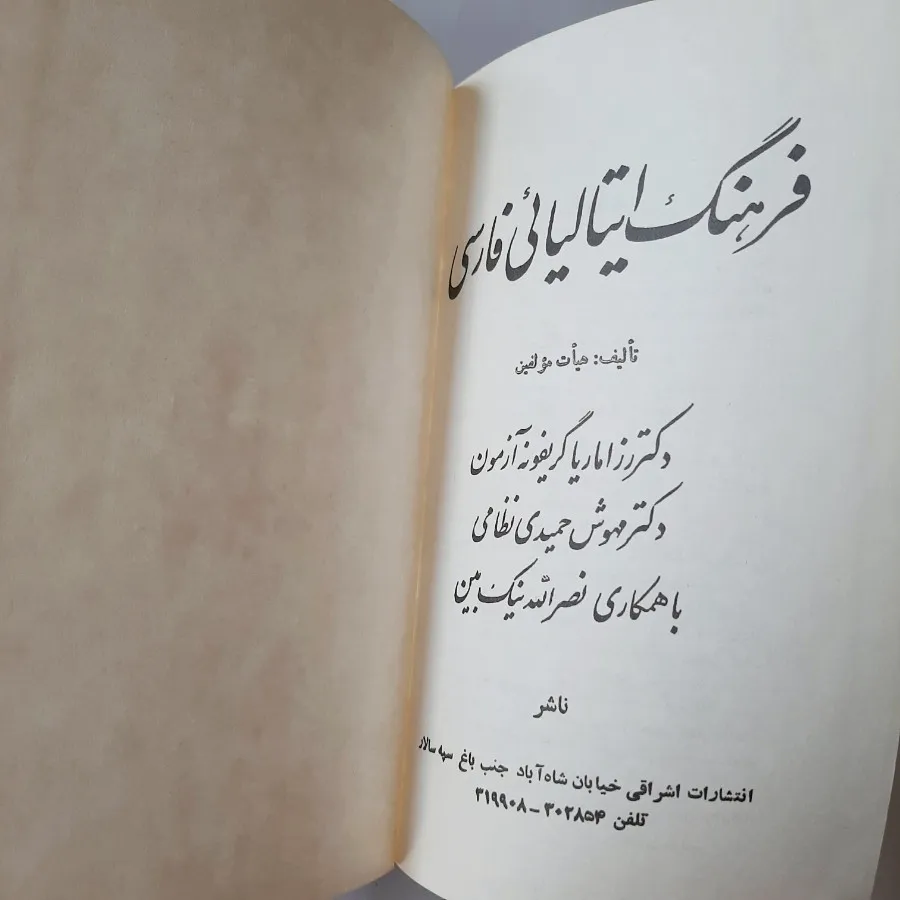 فرهنگ ایتالیائی فارسی
تألیف: هیأت مؤلفین
دکتر رزاماریا گریفونه آزمون
دکتر مهوش حمیدی نظامی
با همکاری نصرالله نیک بین
ناشر
انتشارات اشراقی خیابان شاه‌آباد جنب باغ سپه سالار
تلفن ۳۰۲۸۵۴ – ۳۱۹۹۰۸